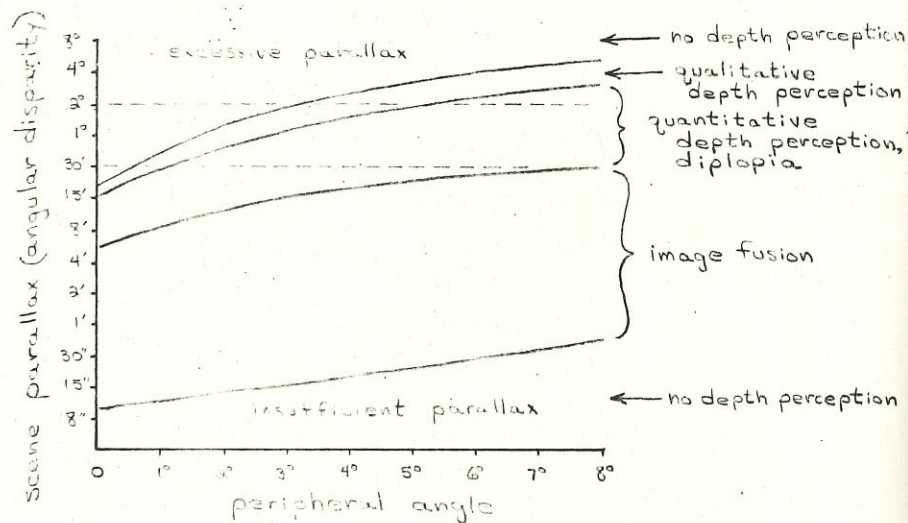 scene parallax (angular disparity)
8°
4°
2°
1°
30'
15'
8'
4'
2'
1'
30"
15"
8"
excessive parallax
insufficient parallax
0
1°
2°
3°
4°
5°
6°
7°
8°
peripheral angle
no depth perception
qualitative
depth perception
quantitative
depth perception,
diplopia
image fusion
no depth perception